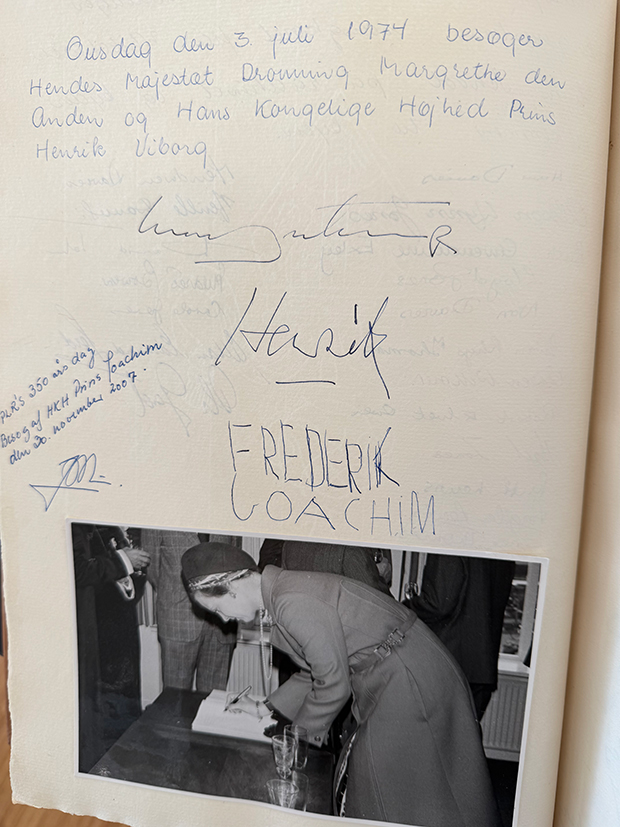 Onsdag den 3. juli 1974 besøger
Hendes Majestæt Dronning Margrethe den
Anden og Hans Kongelige Højhed Prins
Henrik Viborg
Margrethe R
Henrik
PLR'S 350 års dag
Besøg af HKH Prins Joachim
den 30. november 2007.
FREDERIK
JOACHIM